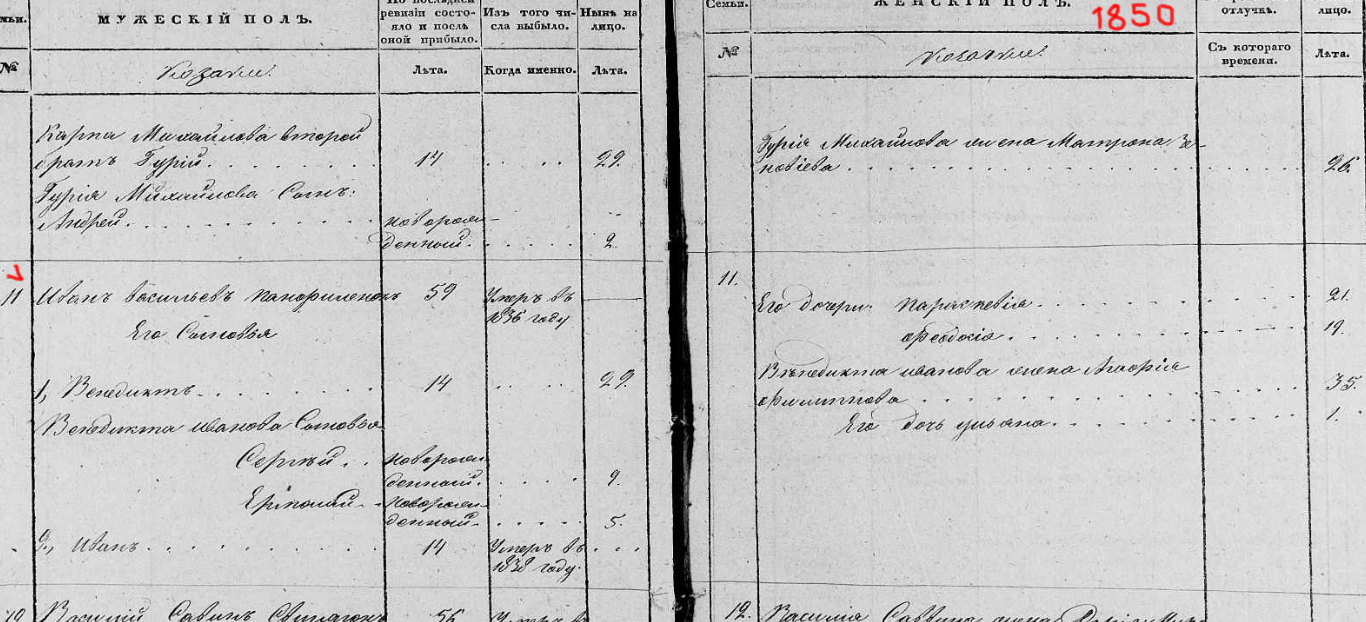 мьи.
МУЖЕСКІЙ ПОЛЪ.
По послѣдней
ревизіи состо-
яло и послѣ
оной прибыло.
Изъ того чи-
сла выбыло.
Нынѣ на
лицо.
№
Козаки.
Лѣта.
Когда именно.
Лѣта.
Карпа Михайлова второй
братъ Гурій. 14 29.
Гурія Михайлова Сынъ:
Андрей. новорож-
денный. 2.
11 Иванъ Васильевъ 59 Умеръ въ
1836 году
Его Сыновья
1, Венедиктъ. 14 29.
Венедикта Иванова Сыновья
Сергѣй. новорож-
денный. 9.
новорож-
денный. 5.
2, Иванъ. 14 Умеръ въ
1838 году.
12 Василій Савинъ 56 Умеръ въ
Семьи.
ЖЕНСКІЙ ПОЛЪ.
1850
отлучкѣ.
лицо.
№
Козачки.
Съ котораго
времени.
Лѣта.
Гурія Михайлова жена Матрона Зе-
новіева. 26.
11.
Его дочери Параскевія. 21.
Феодосія. 19.
Венедикта Иванова жена
Филиппова. 35.
Его дочь Ульяна. 1.
12. Василія Саввина жена